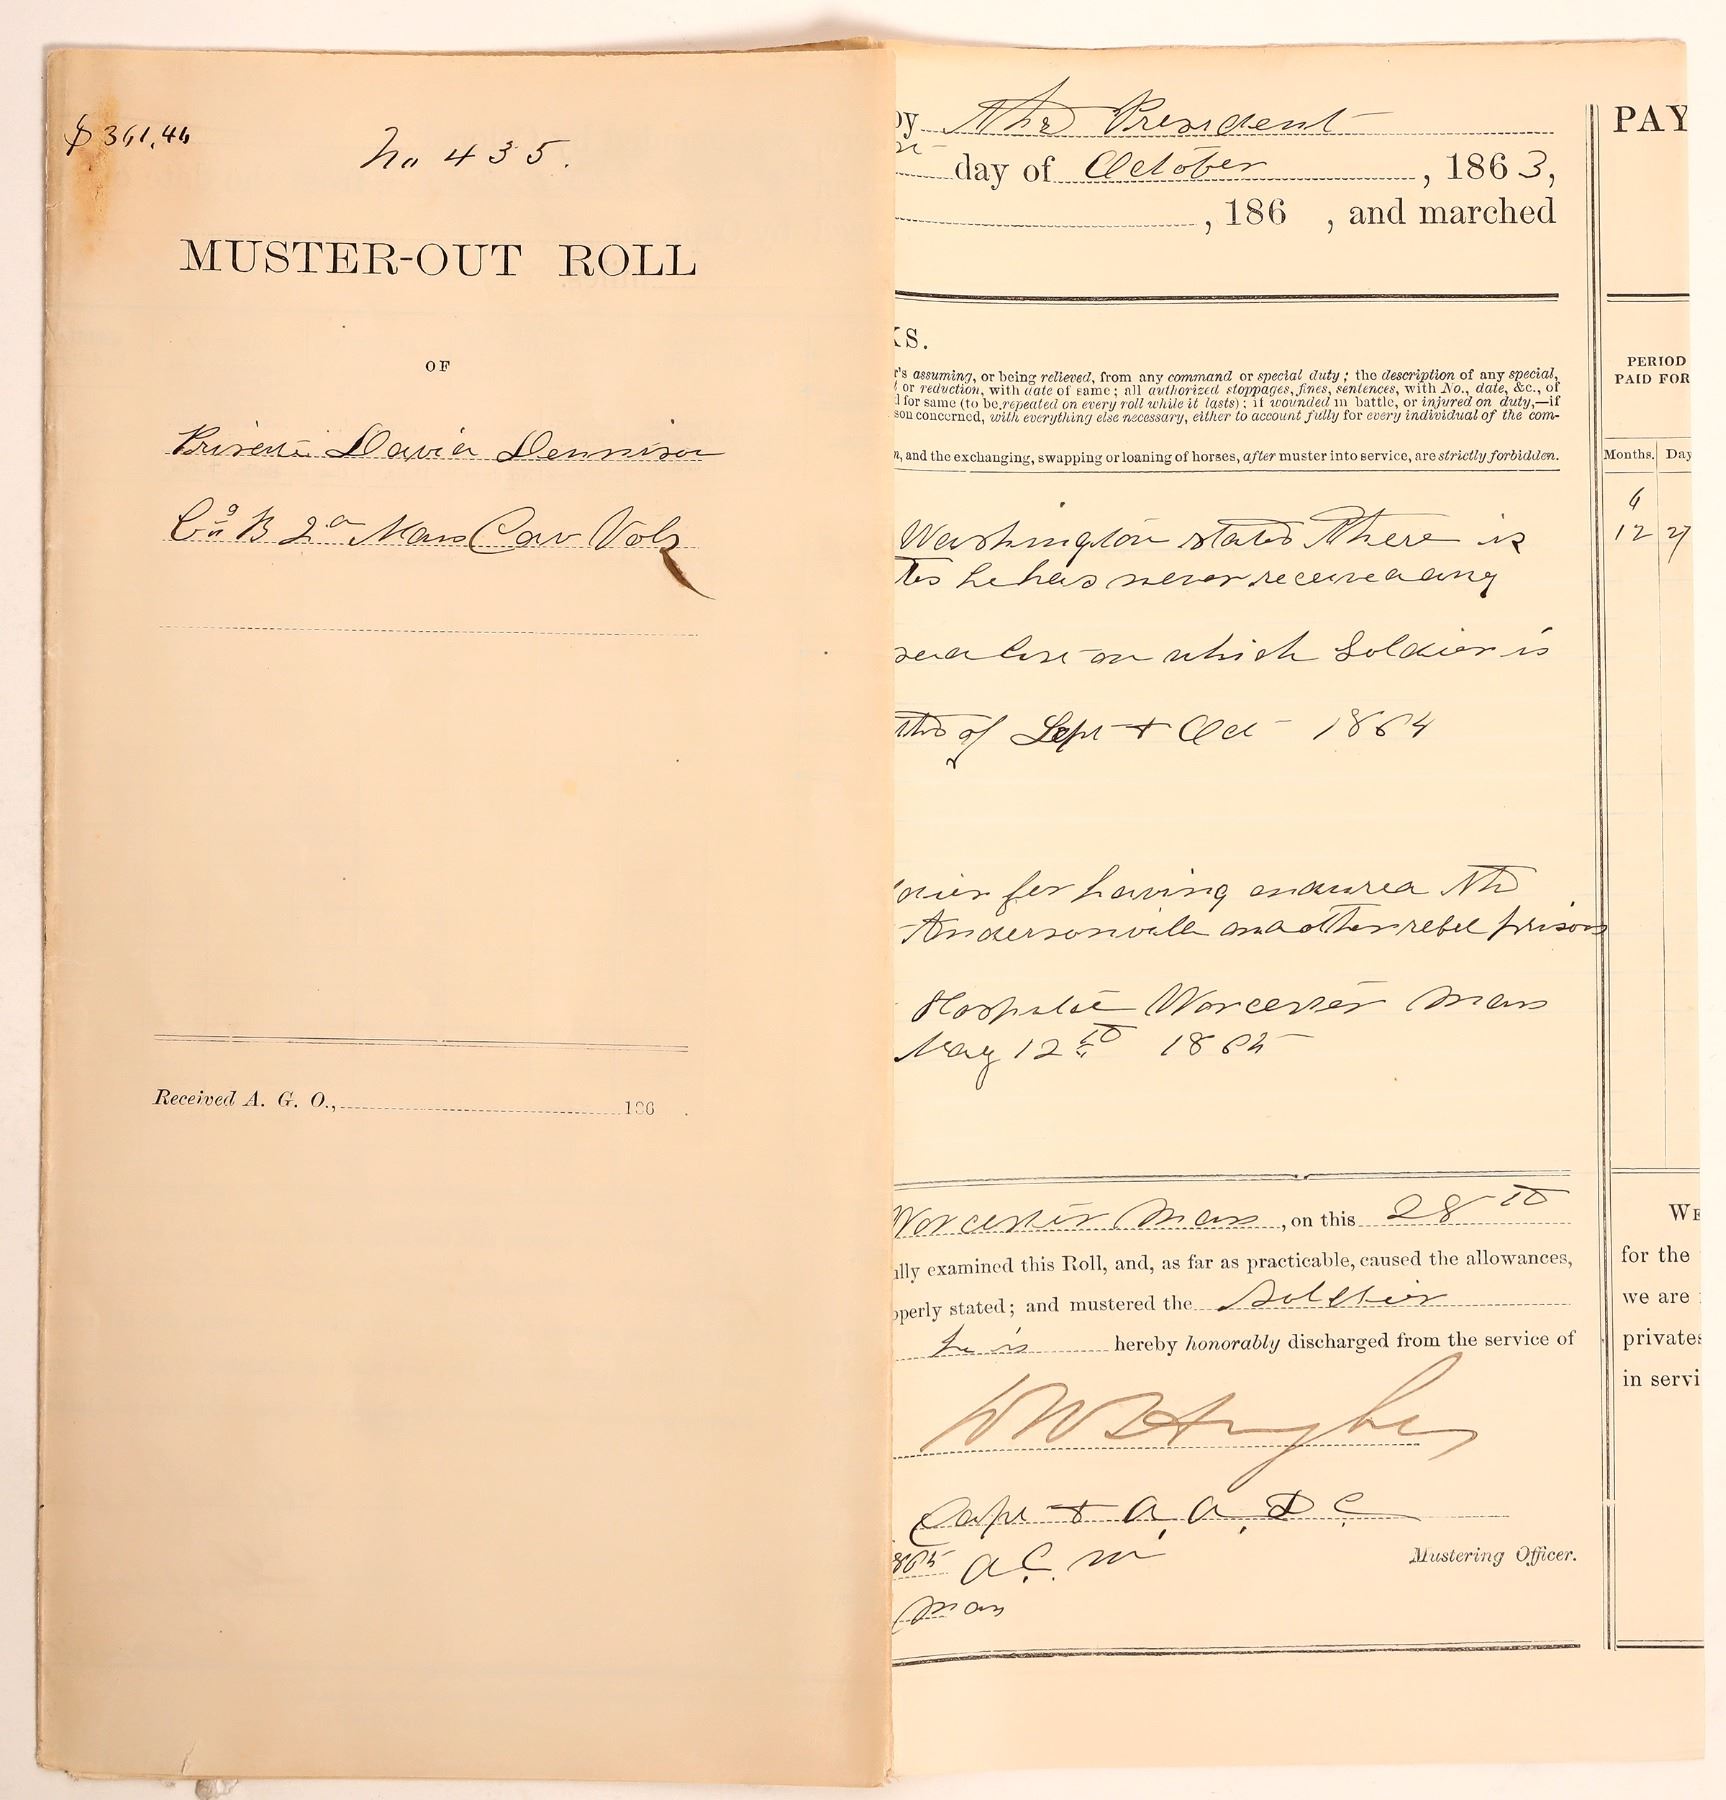 $ 361,46
No 435.
MUSTER-OUT ROLL
OF
Private David Dennison
Co B 2d Mass Cav Vols
Received A. G. O., 186 .
by The President
day of October , 1863,
, 186 , and marched
KS.
r's assuming, or being relieved, from any command or special duty; the description of any special,
or reduction, with date of same; all authorized stoppages, fines, sentences, with No., date, &c., of
d for same (to be repeated on every roll while it lasts); if wounded in battle, or injured on duty,—if
son concerned, with everything else necessary, either to account fully for every individual of the com-
n, and the exchanging, swapping or loaning of horses, after muster into service, are strictly forbidden.
Washington states There is
tes he has never received any
on which Soldier is
ths of Sept + Oct 1864
dier for having endured the
Andersonville and other rebel prisons
Hospital Worcester Mass
May 12th 1865
Worcester Mass , on this 28th
ully examined this Roll, and, as far as practicable, caused the allowances,
operly stated; and mustered the Soldier
he is hereby honorably discharged from the service of
Hughes
Capt + A. A. D. C.
1865 A. C. M
Mustering Officer.
Mass
PAY
PERIOD
PAID FOR
Months. Day
6
12 27
WE
for the
we are
privates
in servi